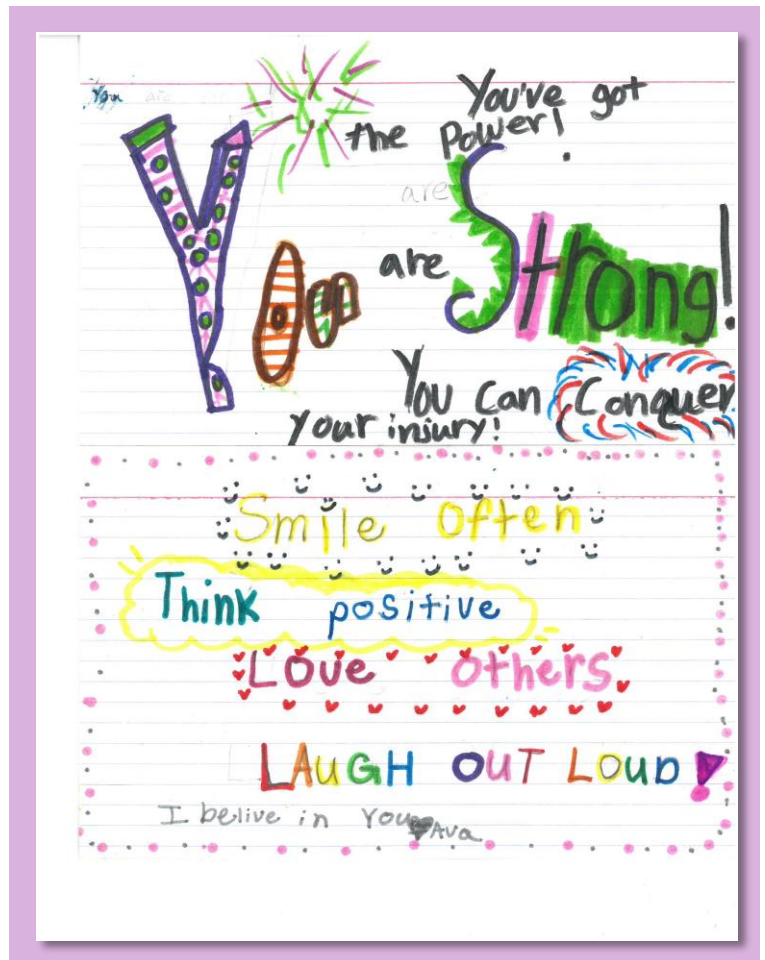 You are
You've got
the Power!
are
You are Strong!
You can Conquer
your injury!
Smile Often
Think positive
Love others
LAUGH OUT LOUD!
I belive in You Ava